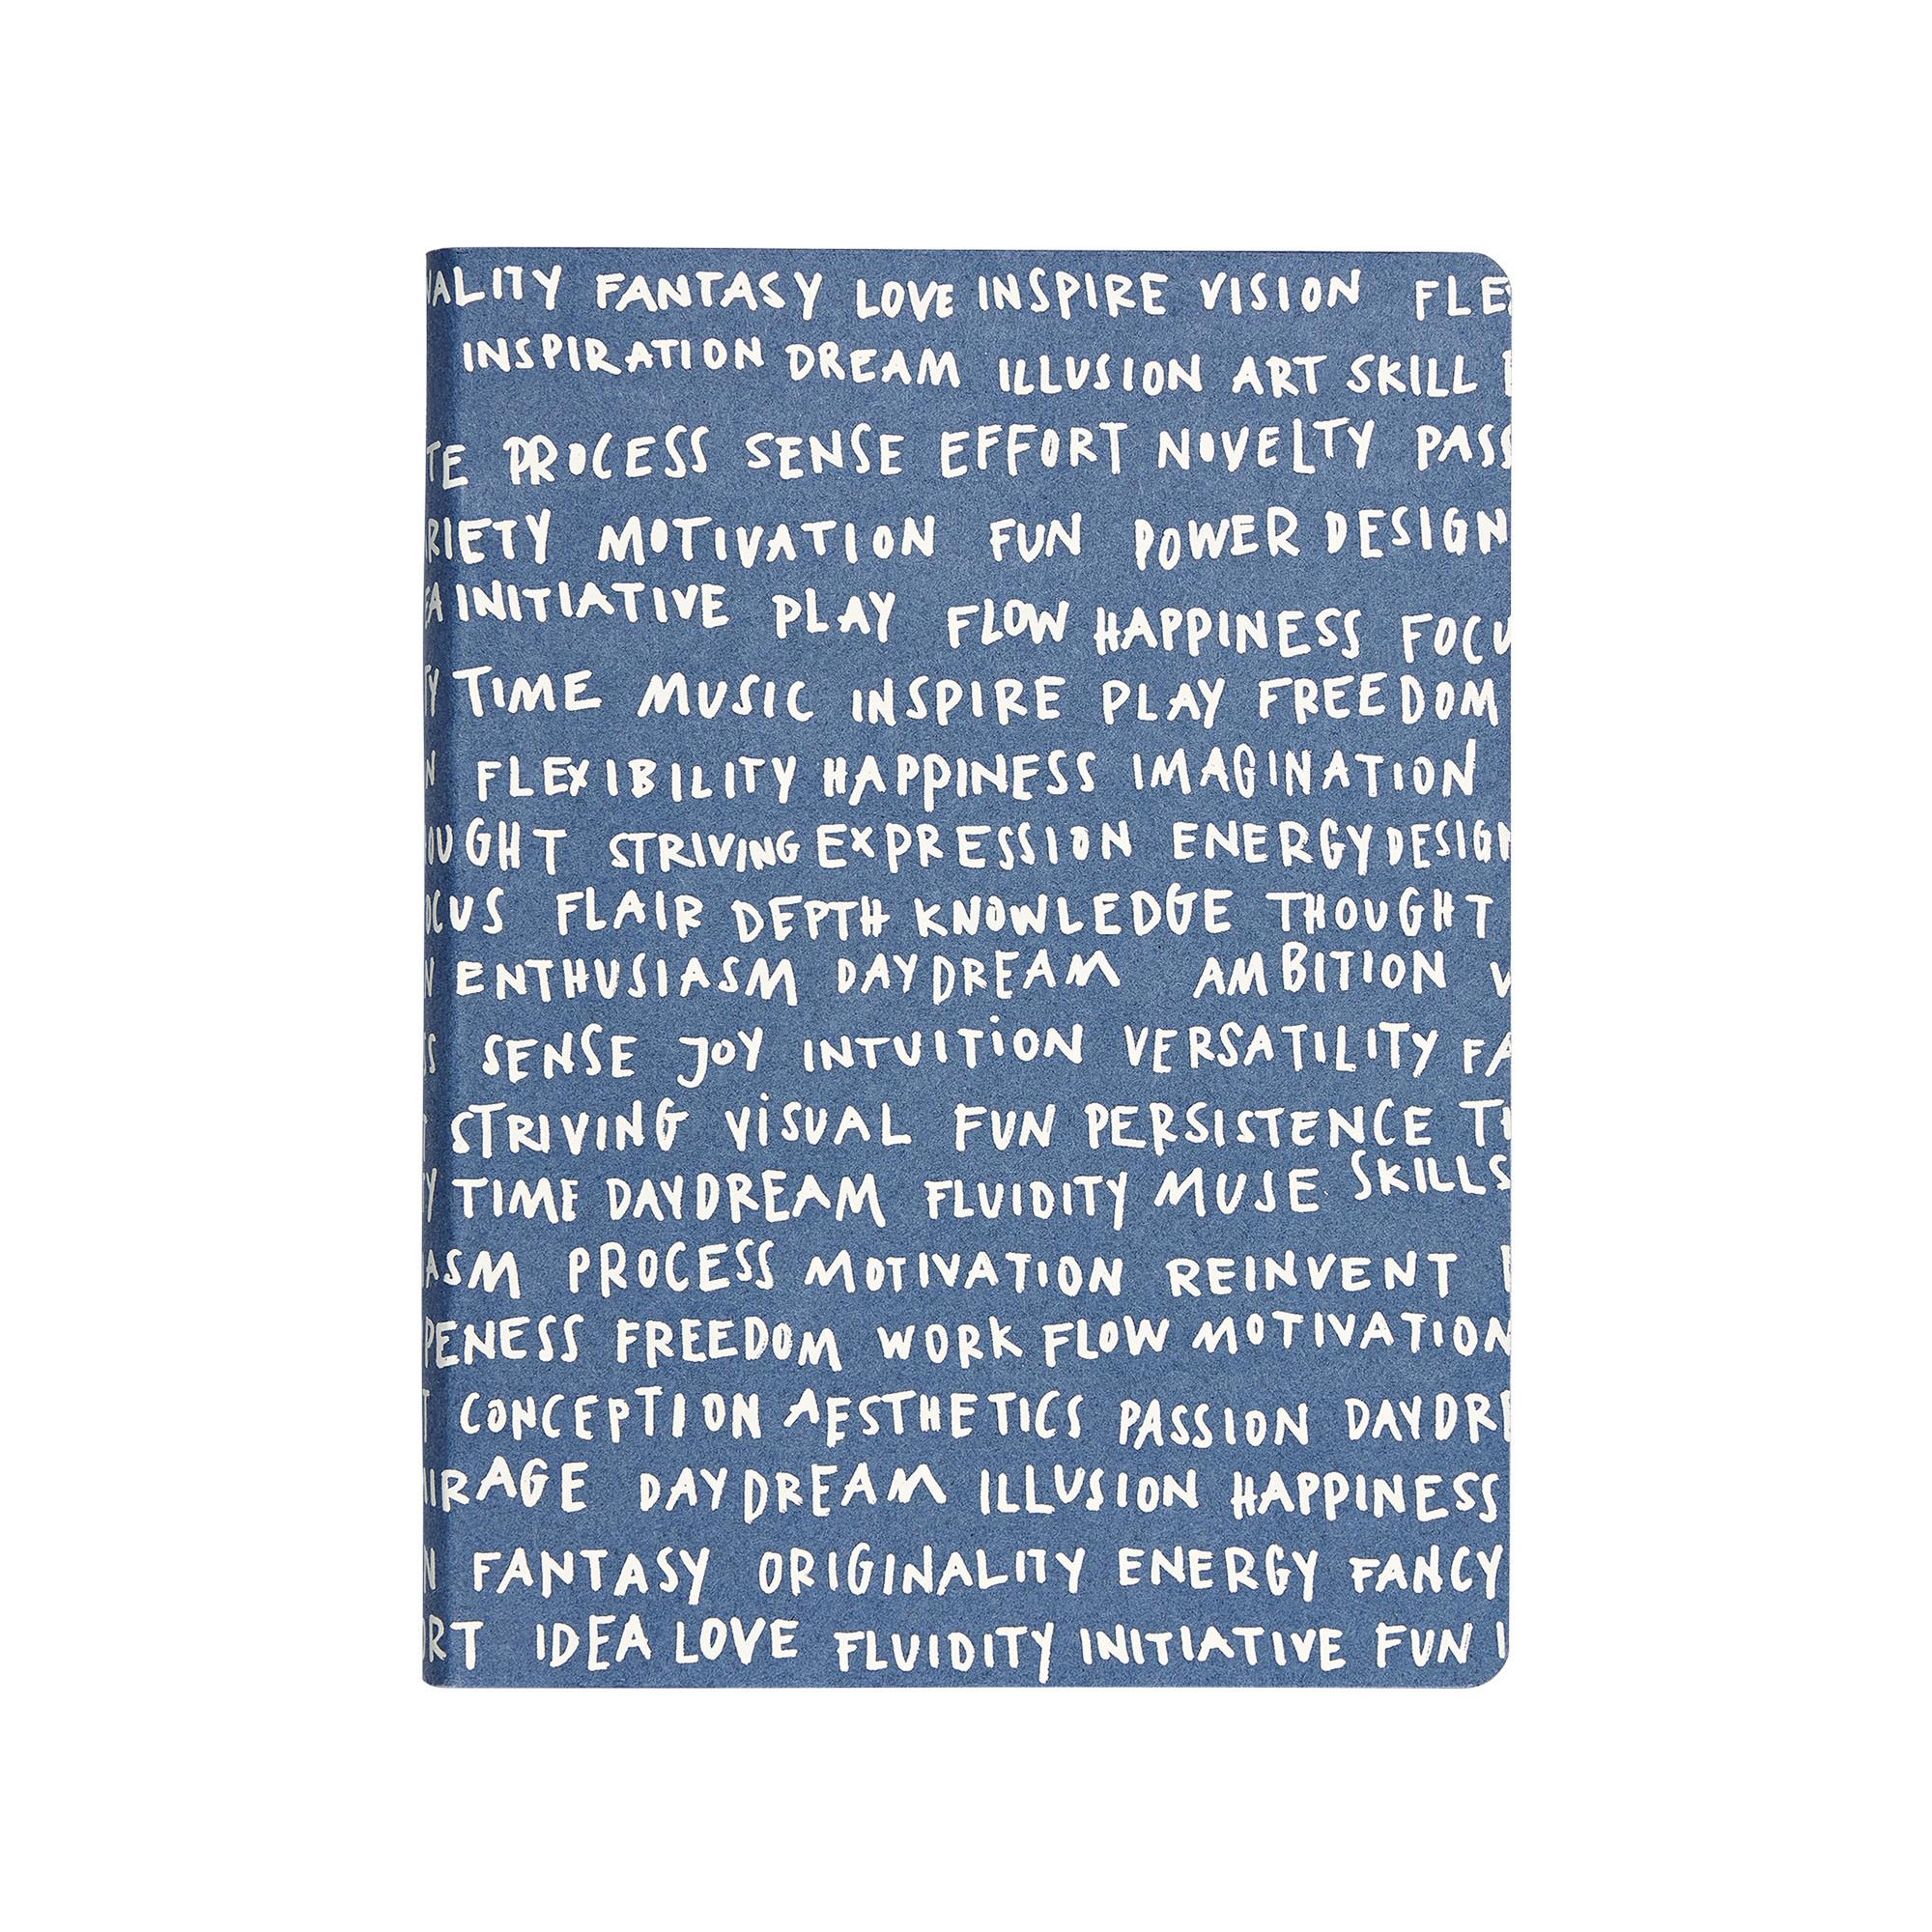 ALITY FANTASY LOVE INSPIRE VISION FLE
INSPIRATION DREAM ILLUSION ART SKILL
TE PROCESS SENSE EFFORT NOVELTY PASS
RIETY MOTIVATION FUN POWER DESIGN
EA INITIATIVE PLAY FLOW HAPPINESS FOCU
TY TIME MUSIC INSPIRE PLAY FREEDOM
N FLEXIBILITY HAPPINESS IMAGINATION
OUGHT STRIVING EXPRESSION ENERGY DESIGN
OCUS FLAIR DEPTH KNOWLEDGE THOUGHT
N ENTHUSIASM DAYDREAM AMBITION V
SS SENSE JOY INTUITION VERSATILITY FA
T STRIVING VISUAL FUN PERSISTENCE TH
TY TIME DAYDREAM FLUIDITY MUSE SKILLS
ASM PROCESS MOTIVATION REINVENT
PENESS FREEDOM WORK FLOW MOTIVATION
T CONCEPTION AESTHETICS PASSION DAYDR
IRAGE DAYDREAM ILLUSION HAPPINESS
N FANTASY ORIGINALITY ENERGY FANCY
ORT IDEA LOVE FLUIDITY INITIATIVE FUN I